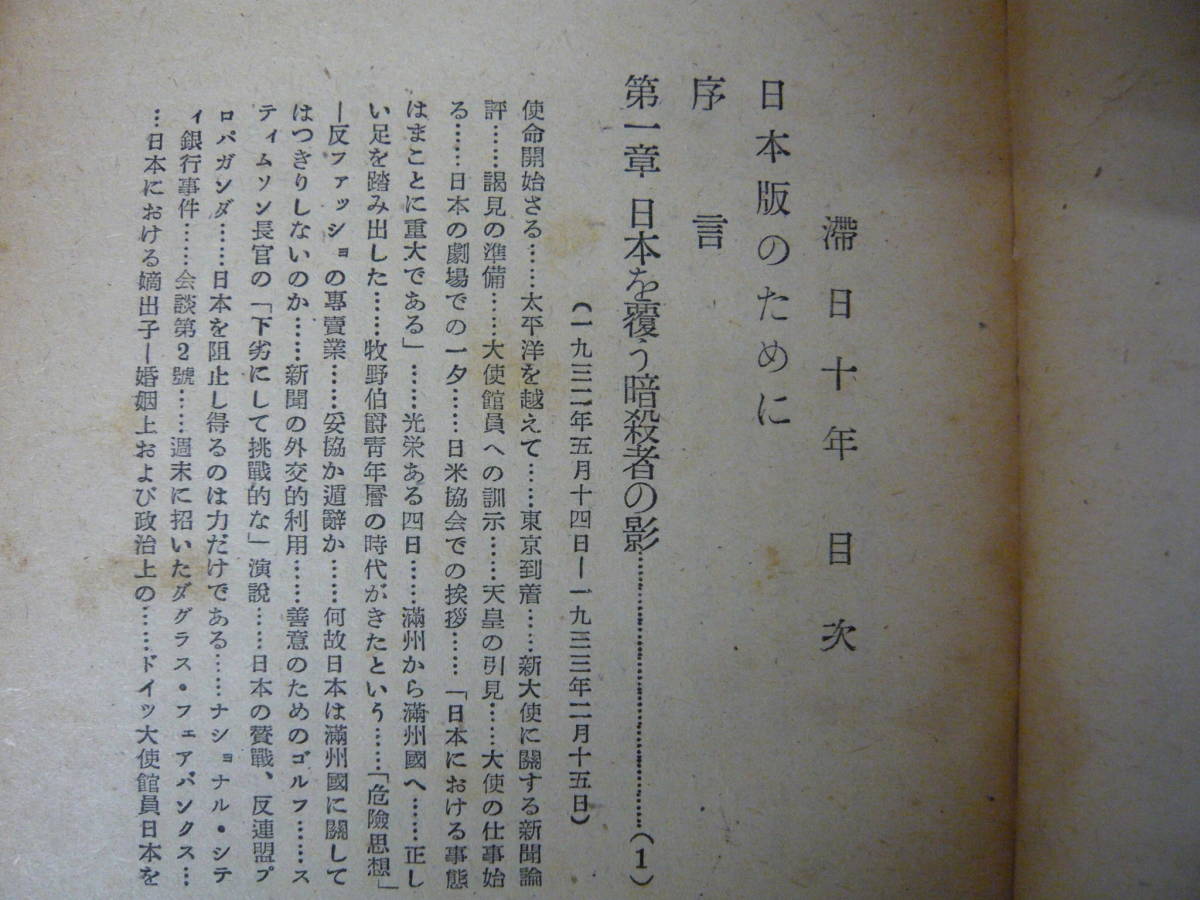 滯日十年　目次
日本版のために
序　言
第一章 日本を覆う暗殺者の影…………………………(1)
(一九三二年五月十四日―一九三三年二月十五日)
使命開始さる……太平洋を越えて……東京到着……新大使に關する新聞論
評……謁見の準備……大使館員への訓示……天皇の引見……大使の仕事始
る……日本の劇場での一夕……日米協会での挨拶……「日本における事態
はまことに重大である」……光栄ある四日……滿州から滿州國へ……正し
い足を踏み出した……牧野伯爵靑年層の時代がきたという……「危險思想」
―反ファッショの專賣業……妥協か遁辭か……何故日本は滿州國に關して
はつきりしないのか……新聞の外交的利用……善意のためのゴルフ……ス
ティムソン長官の「下劣にして挑戰的な」演說……日本の贊戰、反連盟プ
ロパガンダ……日本を阻止し得るのは力だけである……ナショナル・シテ
ィ銀行事件……会談第2號……週末に招いたダグラス・フェアバンクス…
…日本における嫡出子―婚姻上および政治上の……ドイツ大使館員日本を